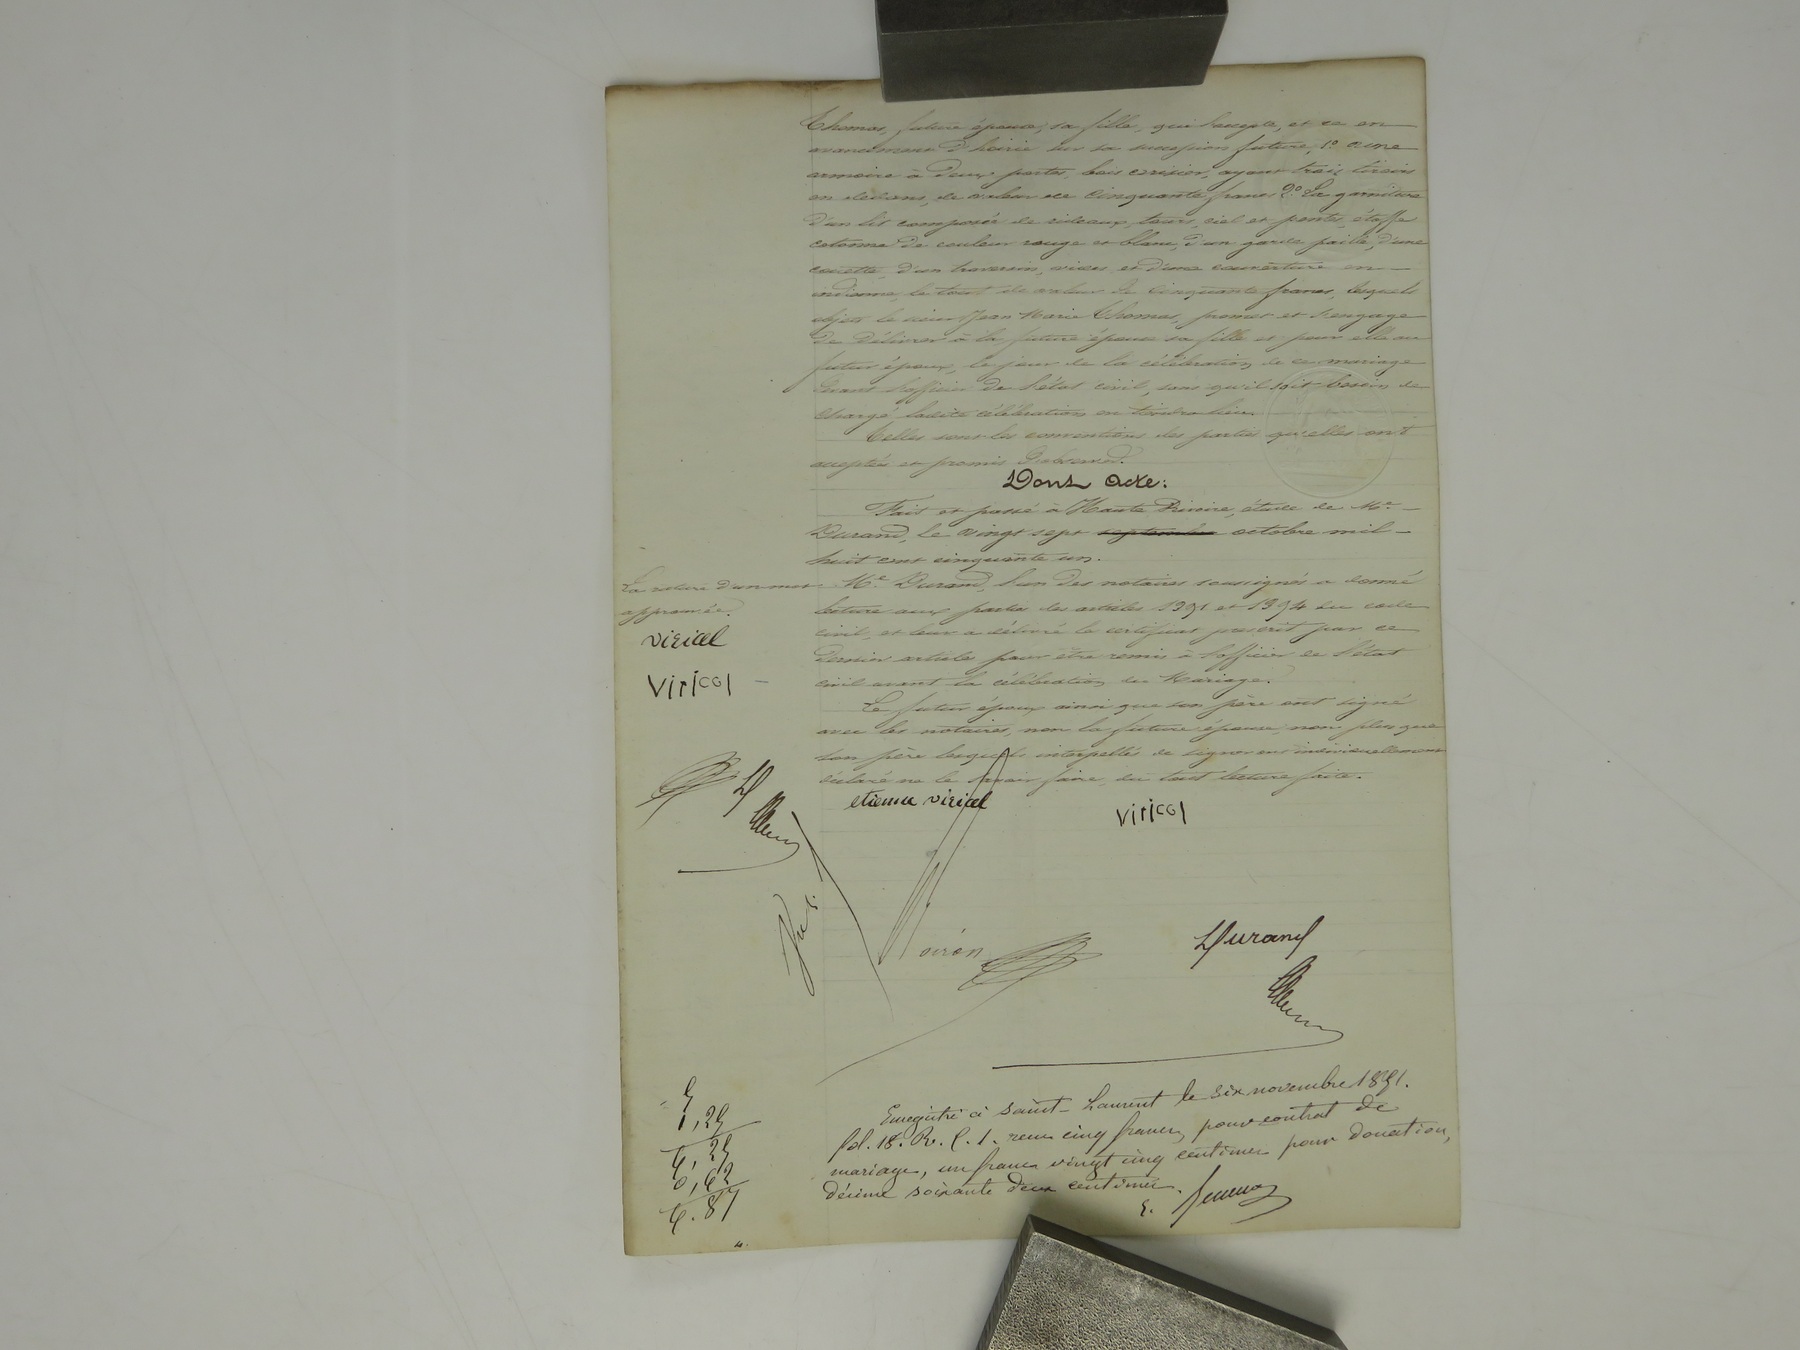 Thomas, future épouse, sa fille, qui l'accepte, et ce en
avancement d'hoirie sur sa succession future, 1º une
armoire à deux portes, bois cerisier, ayant trois tiroirs
en dedans, de valeur de cinquante francs 2º La garniture
d'un lit composée de rideaux, tours, ciel et pente, étoffe
cotonne de couleur rouge et blanc, d'un garde paille, d'une
couette, d'un traversin, vides, et d'une couverture en
indienne, le tout de valeur de cinquante francs, lesquels
objets le sieur Jean Marie Thomas, promet et s'engage
de délivrer à la future épouse sa fille et pour elle au
futur époux, le jour de la célébration de ce mariage
devant l'officier de l'état civil, sans qu'il soit besoin de
charge ladite célébration en tiendra lieu.
Telles sont les conventions des parties qu'elles ont
acceptées et promis d'observer.
Dont Acte:
Fait et passé à Haute Rivoire, étude de Me
Durand, le vingt sept septembre octobre mil
huit cent cinquante un.
Me Durand, l'un des notaires soussignés a donné
lecture aux parties des articles 1391 et 1394 du code
civil, et leur a délivré le certificat prescrit par ce
dernier article pour être remis à l'officier de l'état
civil avant la célébration du Mariage.
Le futur époux ainsi que son père ont signé
avec les notaires, non la future épouse non plus que
son père lesquels interpellés de signer ont individuellement
déclaré ne le savoir faire, du tout lecture faite.
La rature d'un mot
approuvée.
viricel
Viricel
etienne viricel
Viricel
D
Durand
Enregistré à Saint-Laurent le six novembre 1851.
fol. 18. Ro. C. 1. reçu cinq francs, pour contrat de
mariage, un franc vingt cinq centimes pour donation,
décime soixante deux centimes.
5
1,25
6,25
0,62
6.87